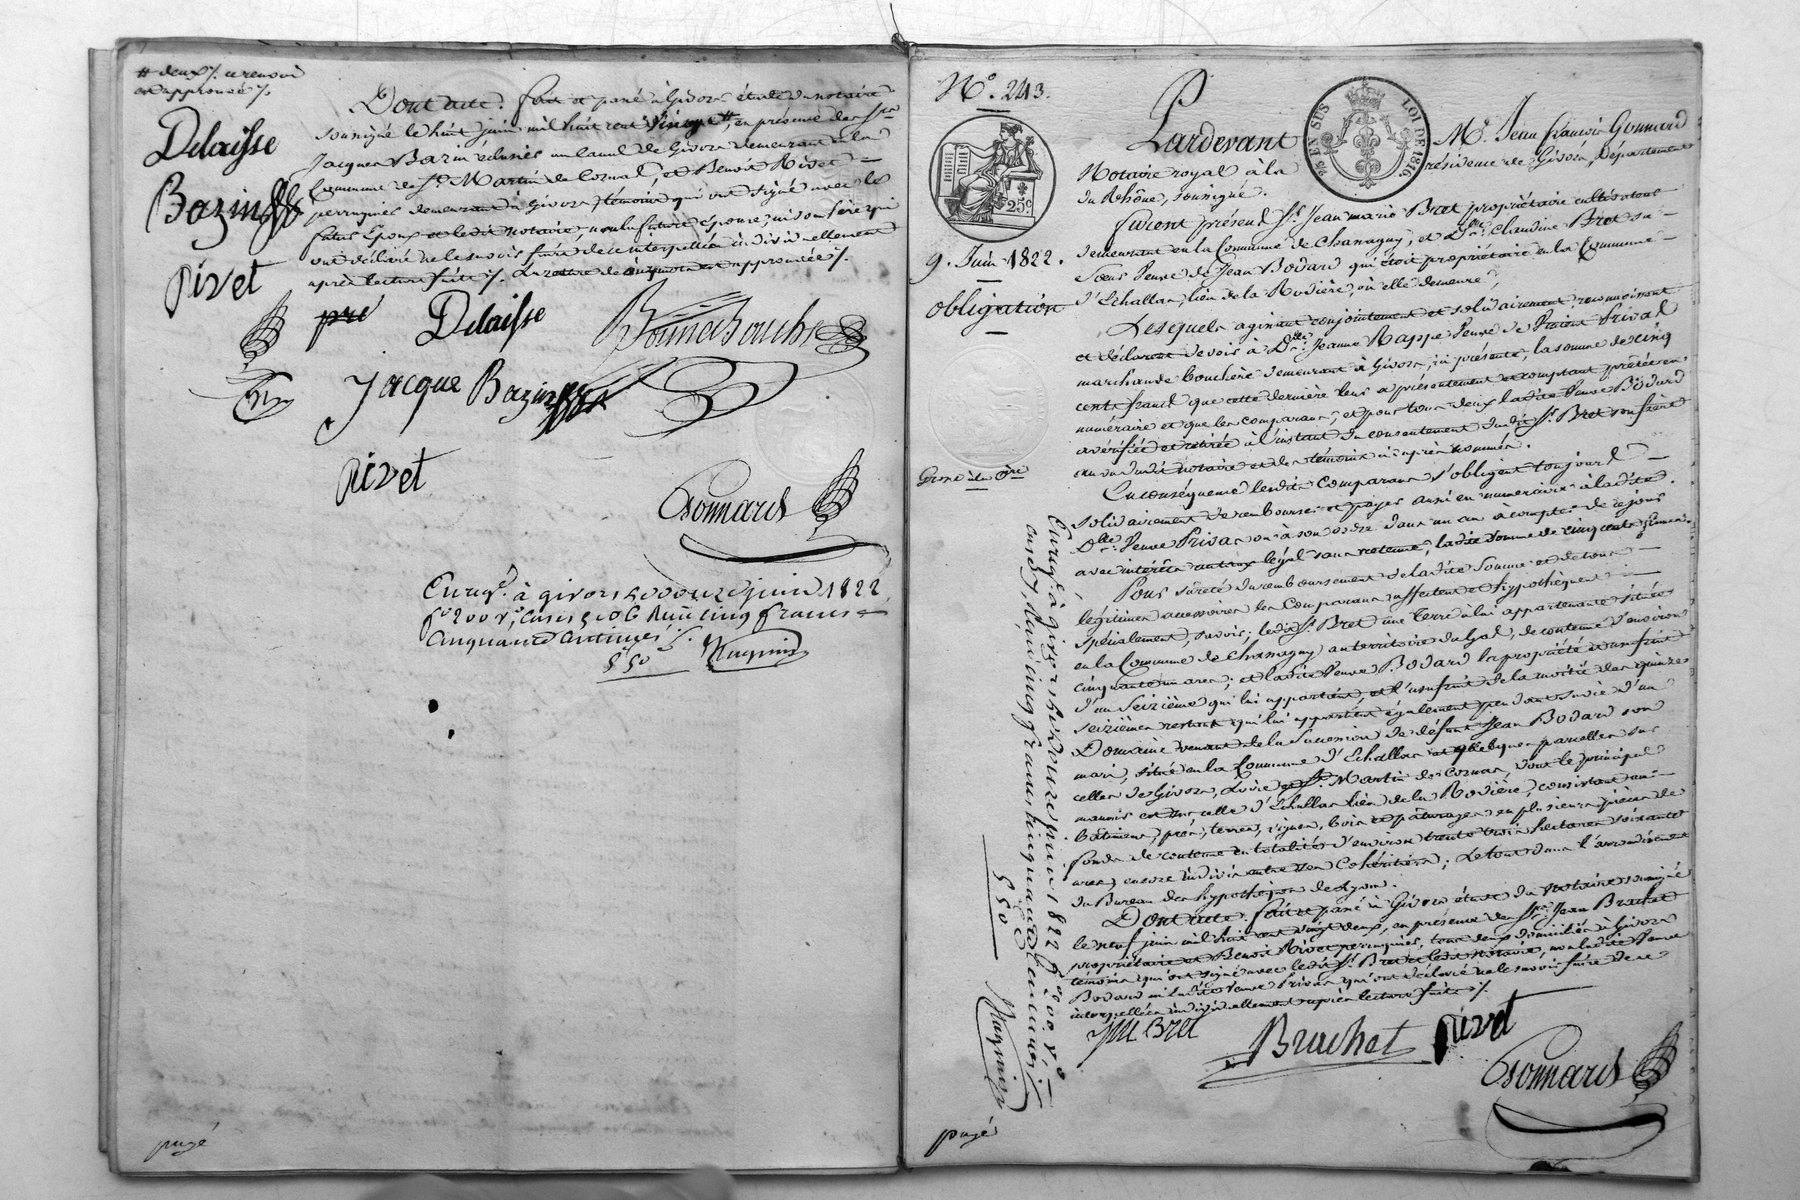 # deux /. ce renvoi
est approuvé /.
Delaisse
Bazin
Rivet
Dont acte. fait et passé à Givors étude du notaire
soussigné le huit juin mil huit cent vingt #, en présence des Srs
Jacques Bazin éclusier au canal de Givors demeurant en la
Commune de St. Martin de Cornas, et Benoit Rivet
perruquier demeurant à Givors, témoins qui ont signé avec le
futur Époux et ledit notaire, non la future Épouse, ni son Père qui
ont déclaré ne le savoir faire de ce interpellés individuellement
après lecture faite /.
pre Delaisse Bonnebouche
Jacque Bazin
Rivet
Gonnard
Enregé. à givors le douze juin 1822
fo 200 vo, Cases 5 et 6 Reçu cinq francs
cinquante centimes /.
5f 50c Magnin
payé
No. 243.
25c
9. Juin 1822.
obligation
Grosse à la Cre
25 EN SUS
LOI DE 1816
Pardevant Me. Jean françois Gonnard
Notaire royal à la résidence de Givors, Département
du Rhône, soussigné.
furent présens Sr. Jean marie Bret propriétaire cultivateur
demeurant en la Commune de Chassagny, et Dme. Claudine Bret sa
sœur Veuve de Jean Bodard qui étoit propriétaire en la Commune
d'Echallas, lieu de la Rodière, où elle demeure,
Lesquels agissant conjointement et solidairement reconnoissent
et déclarent devoir à Dlle. Jeanne Rappe Veuve de Privat
marchande bouchère demeurant à Givors, ici présente, la somme de cinq
cents francs que cette dernière leur a présentement et comptant prêtée en
numéraire et que les comparans, et pour tous deux ladite Veuve Bodard
a vérifiée et retirée à l'instant du consentement dudit Sr. Bret son frère
au vu dudit notaire et des témoins ci-après nommés.
En conséquence lesdits Comparans s'obligent toujours
solidairement de rembourser et payer aussi en numéraire à ladite
Dlle. Veuve Privat ou à son ordre dans un an à compter de ce jour
avec intérêts au taux légal sans retenue, ladite somme de cinq cents francs.
Pour sûreté du remboursement de ladite Somme et de tous
légitimes accessoires les Comparans affectent et hypothèquent
spécialement, savoir; ledit Sr. Bret une Terre à lui appartenante située
en la Commune de Chassagny, au territoire du Gal, de contenue d'environ
cinquante un ares; et ladite Veuve Bodard la propriété et usufruit
d'un seizième qui lui appartient, et l'usufruit de la moitié des quinze
seizièmes restant qui lui appartient également pendant sa vie d'un
Domaine venant de la Succession de défunt Jean Bodard son
mari, situé en la Commune d'Echallas et quelques parcelles sur
celles de Givors, Loire et St. Martin de Cornas, dont le principal
manoir est sur celle d'Echallas lieu de la Rodière, consistant en
bâtimens, prés, terres, vignes, bois et pâturages en plusieurs pièces de
fonds de contenue en totalité d'environ trente trois hectares soixante
ares, encore indivis entre ses Cohéritiers; Le tout dans l'arrondissement
du Bureau des hypothèques de Lyon.
Dont acte. fait et passé à Givors étude du notaire soussigné
le neuf juin mil huit cent vingt deux, en présence des Srs. Jean Brachet
propriétaire et Benoit Rivet perruquier, tous deux domiciliés à Givors
témoins qui ont signé avec ledit Sr. Bret et ledit notaire, non ladite Veuve
Bodard ni ladite Veuve Privat qui ont déclaré ne le savoir faire de ce
interpellées individuellement après lecture faite /.
Bret Brachet Rivet
Gonnard
Enregé. à givors le douze juin 1822 fo 200 vo
Case 7, Reçu cinq francs cinquante centimes
5f 50c
Magnin
payé